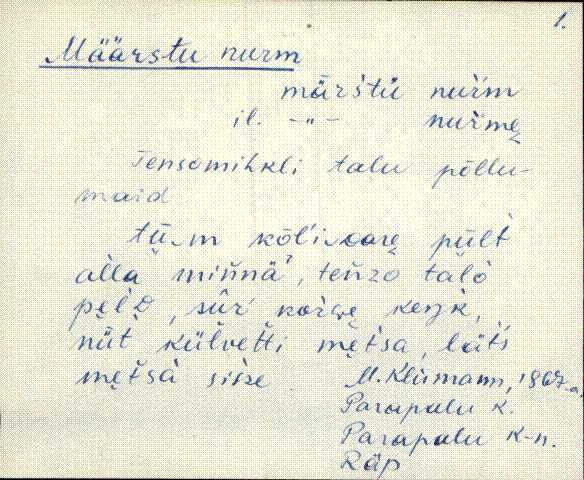 1.
Määrstu nurm
märstü nuŕm
il. -"- nuŕmȩ
Tensomihkli talu põllu-
maid
tǖ‿m kõĺi‿oarȩ pült
alla mińnä, teńzo talo
pȩlD, sūŕ korǵe keŋk,
nüt külvetti mȩtsa, läts
mȩtsa sisze
M. Klismann, 1967. a.
Parapalu k.
Parapalu k-n.
Räp